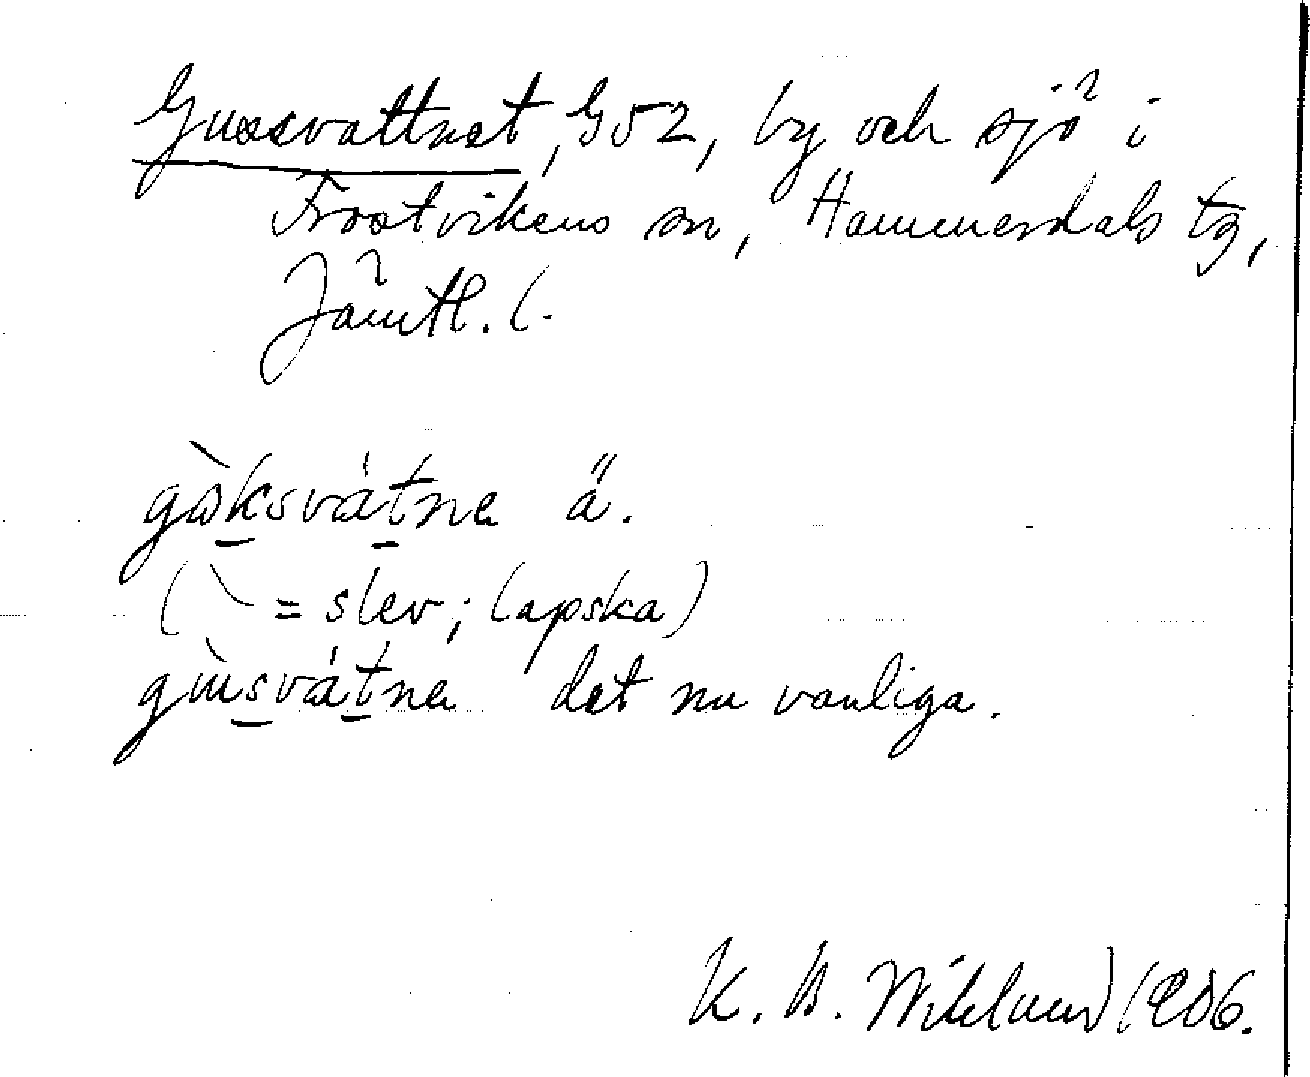 Gussvattnet, G52, by och sjö i
Frostvikens sn, Hammerdals tg,
Jämtl. l.
gòksvátne ä.
( \ = slev; lapska)
gùsvátne det nu vanliga.
K. B. Wiklund 1906.